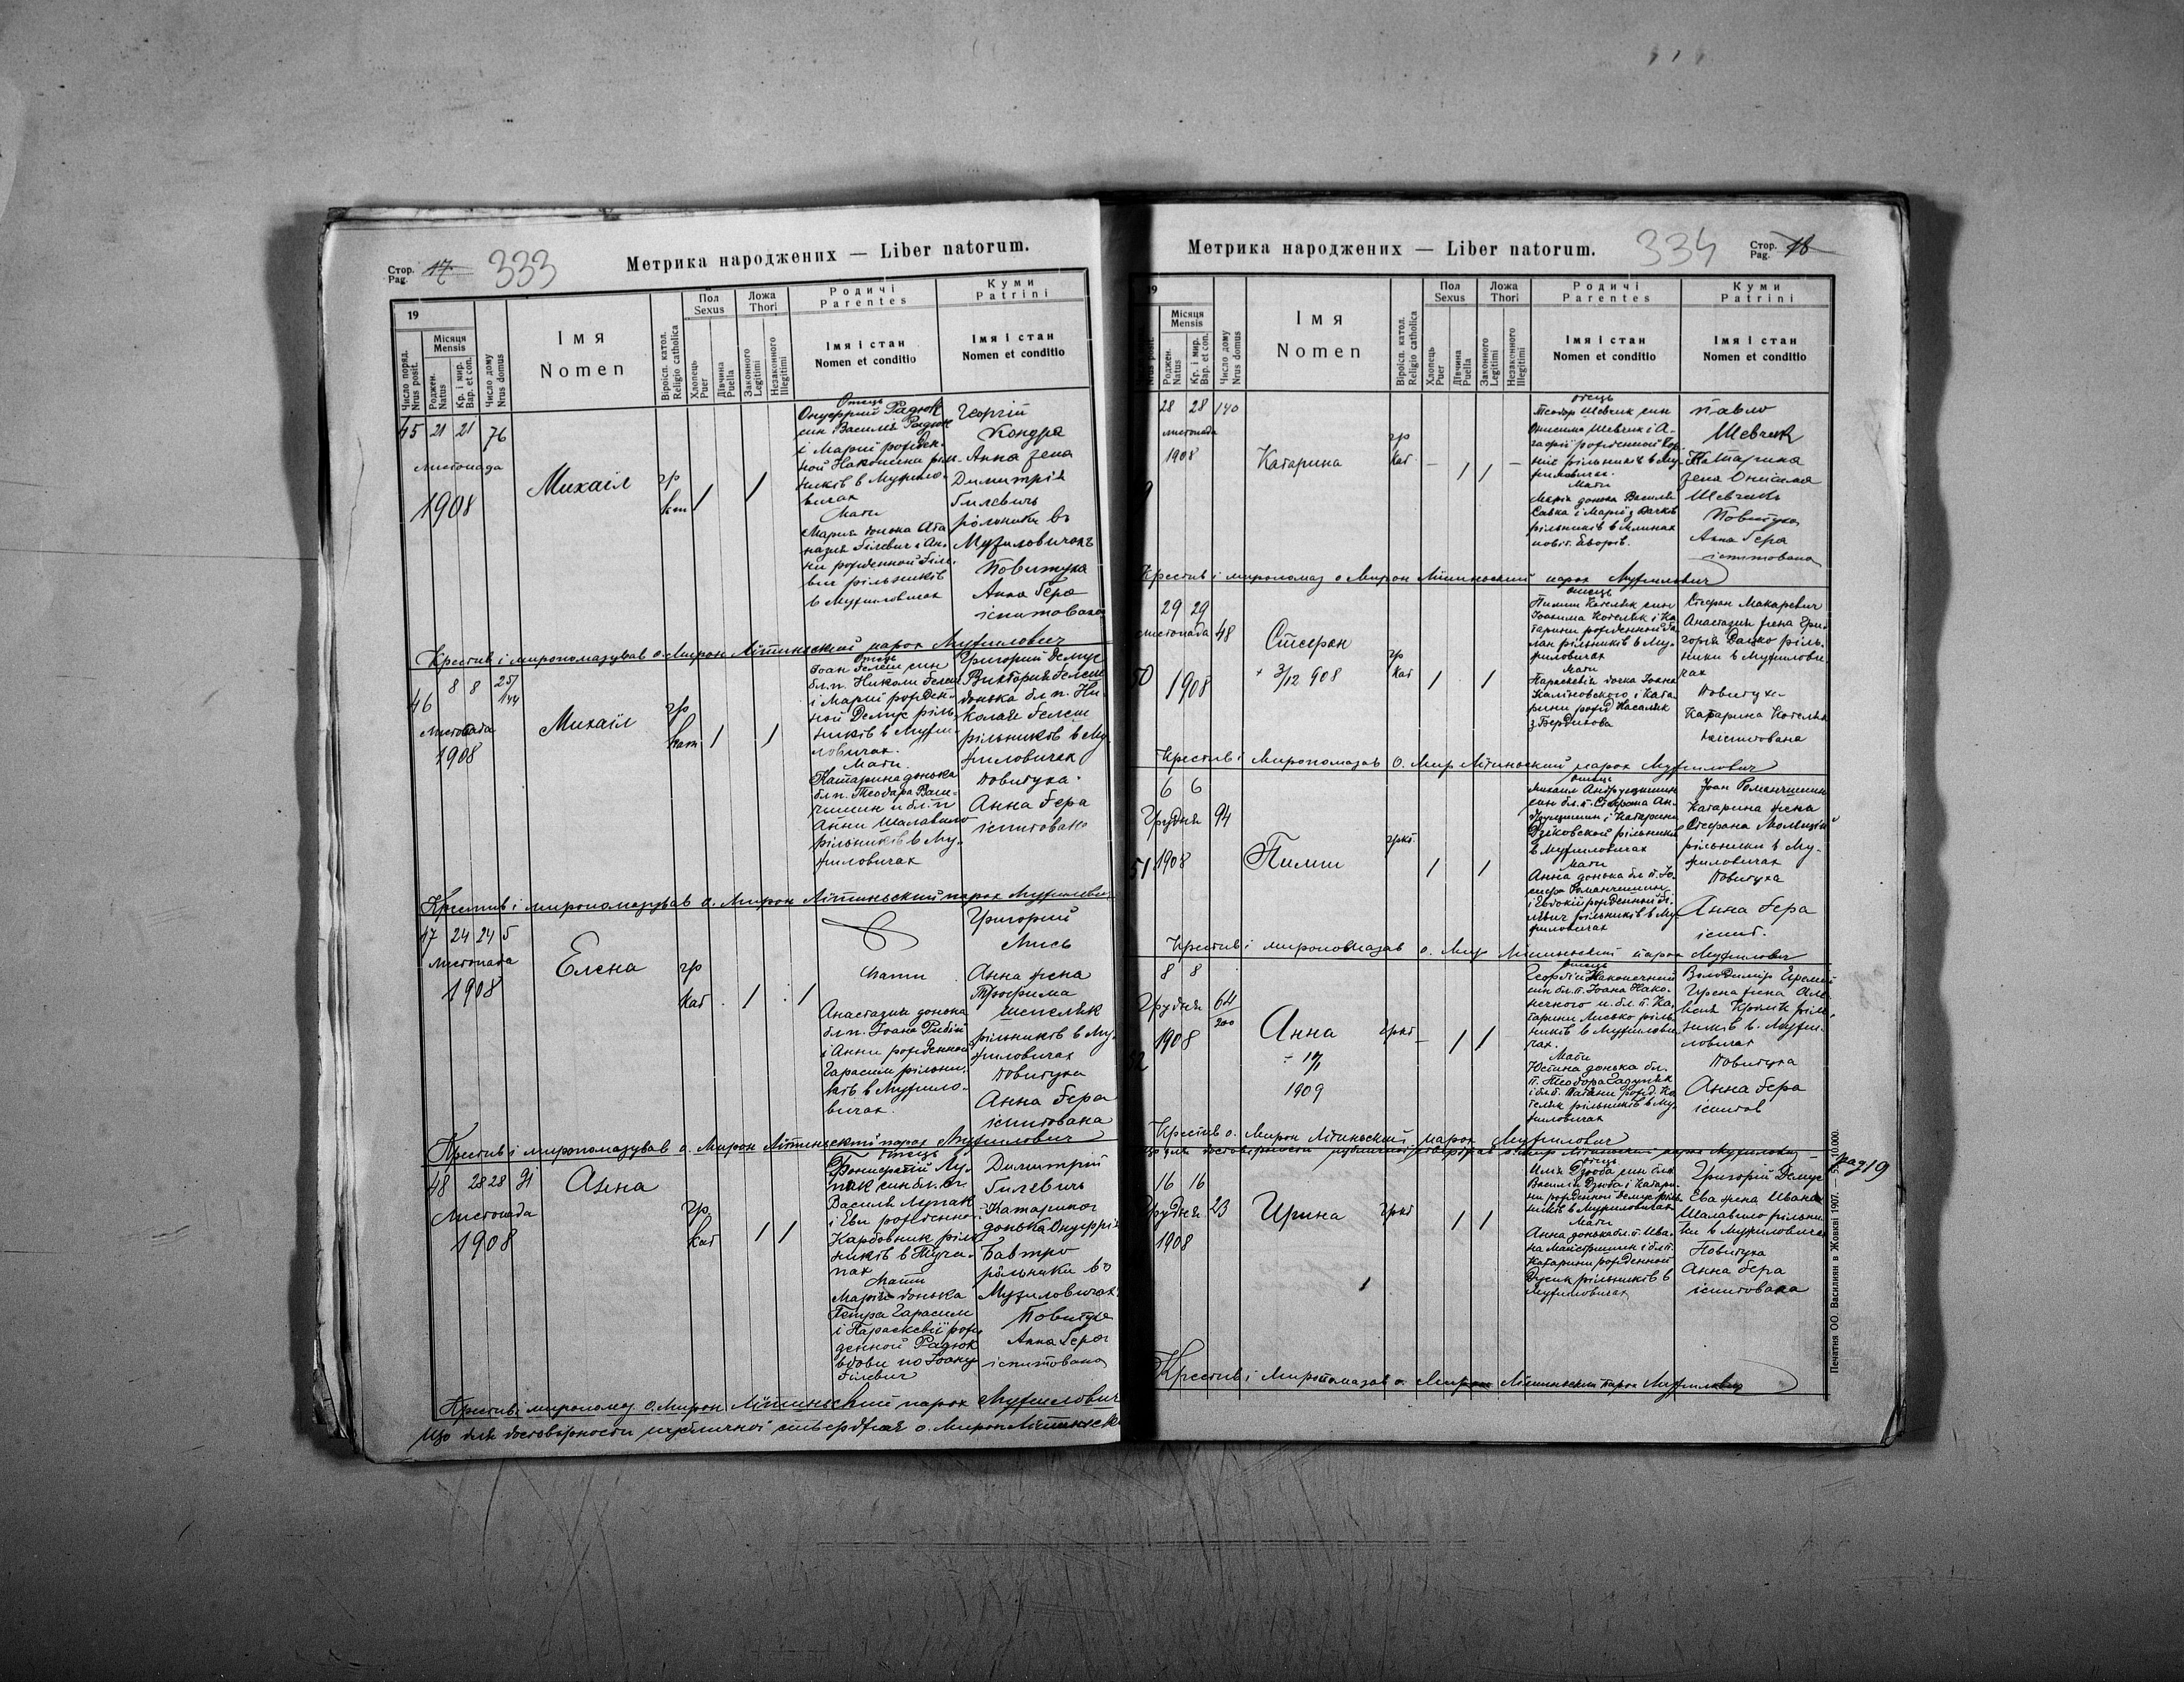 Стор.
Pag. 17 333
Метрика народжених — Liber natorum.
19
Число поряд.
Nrus posit.
Місяця
Mensis
Роджен.
Natus
Кр. і мир.
Bap. et con.
Число дому
Nrus domus
Імя
Nomen
Віроісп. катол.
Religio catholica
Пол
Sexus
Хлопець
Puer
Дївчина
Puella
Ложа
Thori
Законного
Legitimi
Незаконного
Illegitimi
Родичі
Parentes
Імя і стан
Nomen et conditio
Куми
Patrini
Імя і стан
Nomen et conditio
45 21 21 76
Листопада
1908
Михаіл
гр
кат
Отець
Онуфрий Радюк
син Василя Радюк
і Марії рожден-
ной рілн-
ників в Мужило-
вичах
Мати
Мария донька Ата
назия Гілевич і Ан-
ни рожденной Гіле-
вич рільників
в Мужиловичах
Георгій
Кондра
Анна жена
Димитрія
Гилевичь
рôльники въ
Мужиловичахъ
Повитуха
Анна Гера
іспитована
Крестив і миропомазував о. Мирон Літиньский парох Мужилович
46 8 8 25/144
Листопада
1908
Михаїл
гр
кат
Отець
Іоан Гелеш син
бл.п. Николи Гелеш
і Марії рожден-
ной Демус ріль-
ників в Мужи-
ловичах.
Мати
Катарина донька
бл.п. Теодора
и бл.п
Анни Шалавило
рільників в Му-
жиловичах
Григорий Демус
Виктория Гелеш
донька бл п. Ни-
колая Гелеш
рільників в Му-
жиловичах
Повитуха
Анна Гера
іспитована
Крестив і миропомазував о. Мирон Літиньский парох Мужилович
47 24 24 5
Листопада
1908
Елена
гр
кат
Мати
Анастазия донька
бл.п. Іоана Рибій
і Анни рожденной
Гарасим рільни-
ків в Мужило-
вичах.
Григорий
Мись
Анна жена
Трофима
Шпеляк
рільників в Му-
жиловичах
Повитуха
Анна Гера
іспитована
Крестив і миропомазував о. Мирон Літиньский парох Мужилович
48 28 28 91
Листопада
1908
Анна
гр
кат
Отець
Бонифатій Лу-
пак син бл. п.
Василя Лупак
і Еви рожденной
Карбовник ріль-
ників в Туча-
пах
Мати
Марія донька
Петра Гарасим
і Параскевії рож-
денной Радюк
вдови по Іоану
Гілевич
Димитрій
Гилевичь
Катарина
донька Онуфрія
Бавтро
рôльники въ
Мужиловичахъ
Повитуха
Анна Гера
іспитована
Крестив і миропомаз. о. Мирон Літиньский парох Мужилович
Що для достовірности публичної стверджає о. Мирон Літиньск
Метрика народжених — Liber natorum.
334 Стор.
Pag. 18
9
Nrus posit.
Місяця
Mensis
Роджен.
Natus
Кр. і мир.
Bap. et con.
Число дому
Nrus domus
Імя
Nomen
Віроісп. катол.
Religio catholica
Пол
Sexus
Хлопець
Puer
Дївчина
Puella
Ложа
Thori
Законного
Legitimi
Незаконного
Illegitimi
Родичі
Parentes
Імя і стан
Nomen et conditio
Куми
Patrini
Імя і стан
Nomen et conditio
9
28 28 140
листопада
1908
Катарина
гр
кат
отець
Теодор Шевчик син
Онисима Шевчик і А-
гафії рожденной
рільників в Му-
жиловичах.
Мати
Марія донька Василя
Савка і Марії з Дачків
рільників в Млинах
повіт. Яворів.
Павло
Шевчик
Катарина
жена Онисима
Шевчикъ
Повитуха
Анна Гера
іспитована
Крестив і миропомаз о Мирон Літиньский парох Мужилович
50
29 29
листопада 48
1908
Стефан
+ 3/12 908
гр
кат
отець
Пилип Котеляк син
Іоакима Котеляк і Ка-
тарини рожденной Ба-
лан рільників в Му-
жиловичах
Мати
Параскевія дочка Іоана
Каліновского і Ката-
рини рожд Насаляк
з Бердихова
Стефан Макаревич
Анастазия жена Гри-
горія Дацко ріль-
ники в Мужилови
чах
Повитуха
Катарина Котеляк
неіспитована
Крестив і Миропомазав о. Мир Літиньский парох Мужилович
51
6 6
Грудня 94
1908
Пилип
гркт
отець
Михаил Андрущишин
син бл.п. Стефана Ан-
друщишин і Катарини
Дзіковской рільники
в Мужиловичах
Мати
Анна донька бл п. Іо-
сифа Романчишин
і Евдокії рожденной Гі-
левич рільників в Му-
жиловичах
Іоан Романчишин
Катарина жена
Стефана
рільники в Му-
жиловичах
Повитуха
Анна Гера
іспит.
Крестив і миропомазав о. Мир Літиньский парох Мужилович
52
8 8
Грудня 64/200
1908
Анна
1909
гркт
отець
Георгій Наконечний
син бл.п. Іоана Нако-
нечного и бл. п. Ка-
тарини Лисько ріль-
ників в Мужилови-
чах.
Мати
Юстина донька бл.
п. Теодора
і бл.п. Татяни рожд. Ко
теляк рільників в Му-
жиловичах
Володимір
Ирена жена Оле-
ксія Кролик ріль-
ників в. Мужи-
ловичах
Повитуха
Анна Гера
іспитов
Крестив о. Мирон Літиньский парох Мужилович
Що для достовірности публичної стверджає о. Мир Літиньский парох Мужилович
pag 19
16 16
Грудня 23
1908
Ирина
гркт
отець
Илія Дзюба син бл.п.
Василія Дзюба і Катари-
ни рожденной Демус ріль-
ників в Мужиловичах
Мати
Анна донька бл. п. Ива-
на Маистришин і бл п.
Катарини рожденной
Дусик рільників в
Мужиловичах
Григорій Демус
Ева жена Ивана
Шалавило рільни-
ки в Мужиловичах
Повитуха
Анна Гера
іспитована
Крестив і Миропомазав о. Мирон Літиньский парох Мужилович
Печатня ОО. Василиян в Жовкві 1907. —